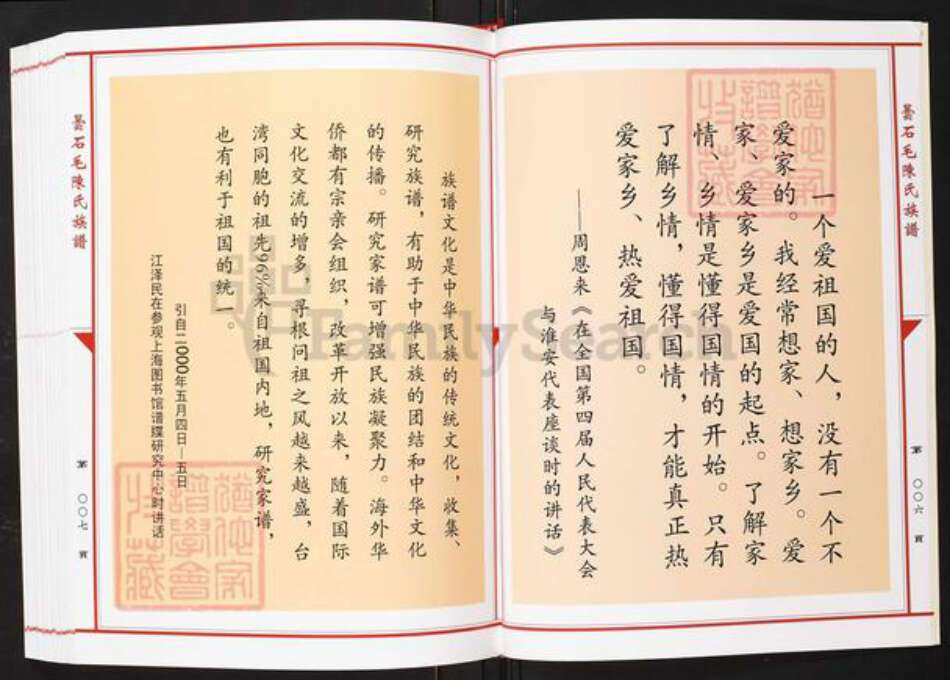 曇石毛陳氏族譜
第 〇〇六 頁
一个爱祖国的人，没有一个不
爱家的。我经常想家、想家乡。爱
家、爱家乡是爱国的起点。了解家
情、乡情是懂得国情的开始。只有
了解乡情，懂得国情，才能真正热
爱家乡、热爱祖国。
——周恩来《在全国第四届人民代表大会
与淮安代表座谈时的讲话》
族谱文化是中华民族的传统文化，收集、
研究族谱，有助于中华民族的团结和中华文化
的传播。研究家谱可增强民族凝聚力。海外华
侨都有宗亲会组织，改革开放以来，随着国际
文化交流的增多，寻根问祖之风越来越盛，台
湾同胞的祖先96%来自祖国内地，研究家谱，
也有利于祖国的统一。
引自二000年五月四日—五日
江泽民在参观上海图书馆谱牒研究中心时讲话
曇石毛陳氏族譜
第 〇〇七 頁
FamilySearch